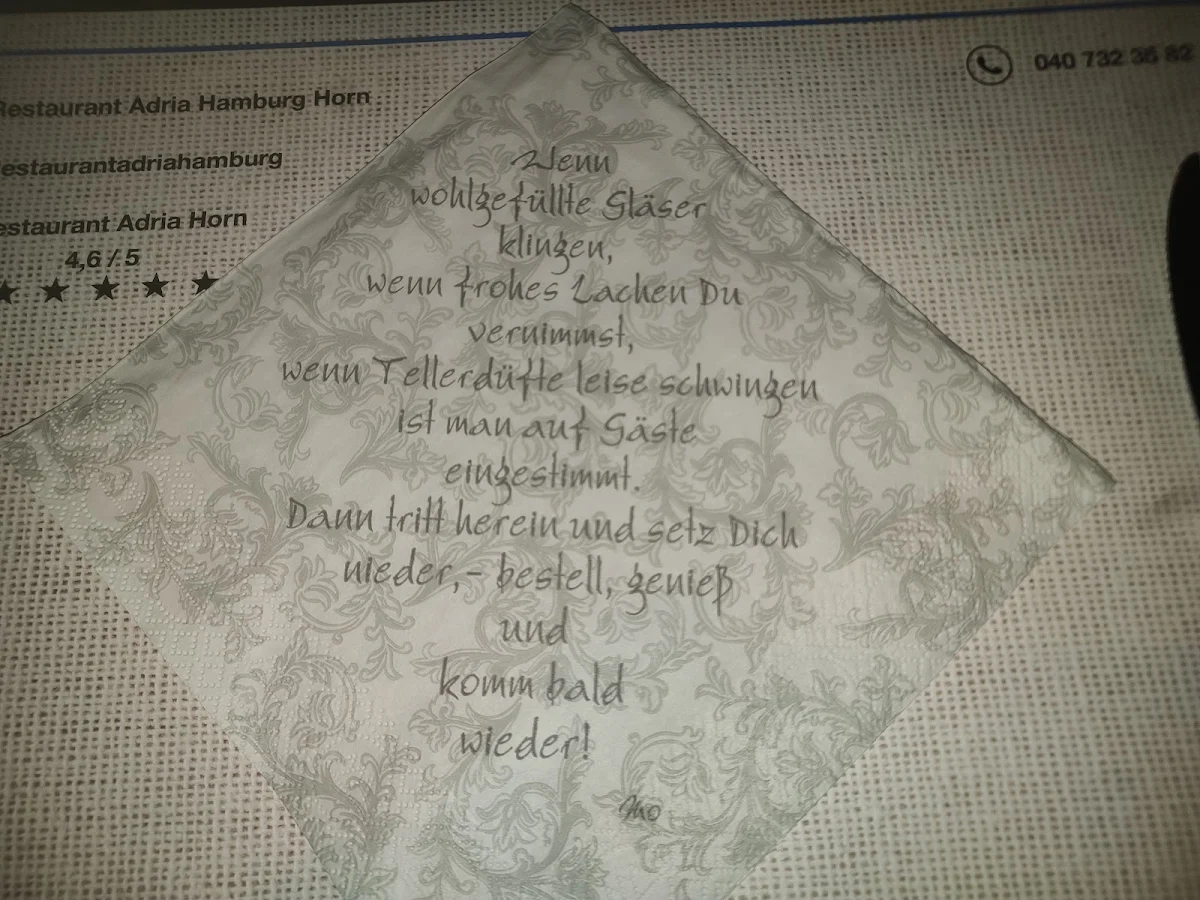 Restaurant Adria Hamburg Horn
040 732 36 82
estaurantadriahamburg
estaurant Adria Horn
4,6 / 5
Wenn
wohlgefüllte Gläser
klingen,
wenn frohes Lachen Du
vernimmst,
wenn Tellerdüfte leise schwingen
ist man auf Gäste
eingestimmt.
Dann tritt herein und setz Dich
nieder,- bestell, genieß
und
komm bald
wieder!